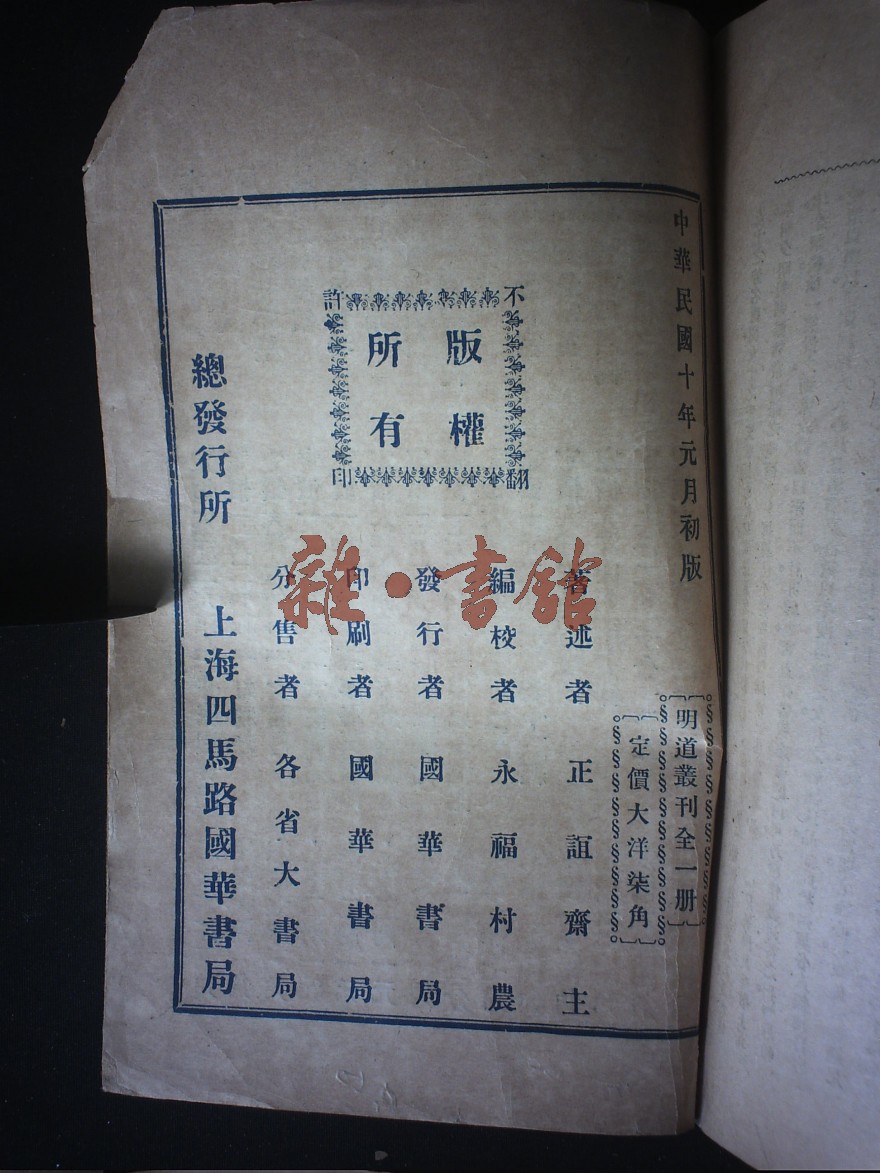 中華民國十年元月初版
明道叢刊全一册
定價大洋柒角
不許翻印
版權所有
著述者 正誼齋主
編校者 永福村農
發行者 國華書局
印刷者 國華書局
分售者 各省大書局
總發行所 上海四馬路國華書局
雜·書館